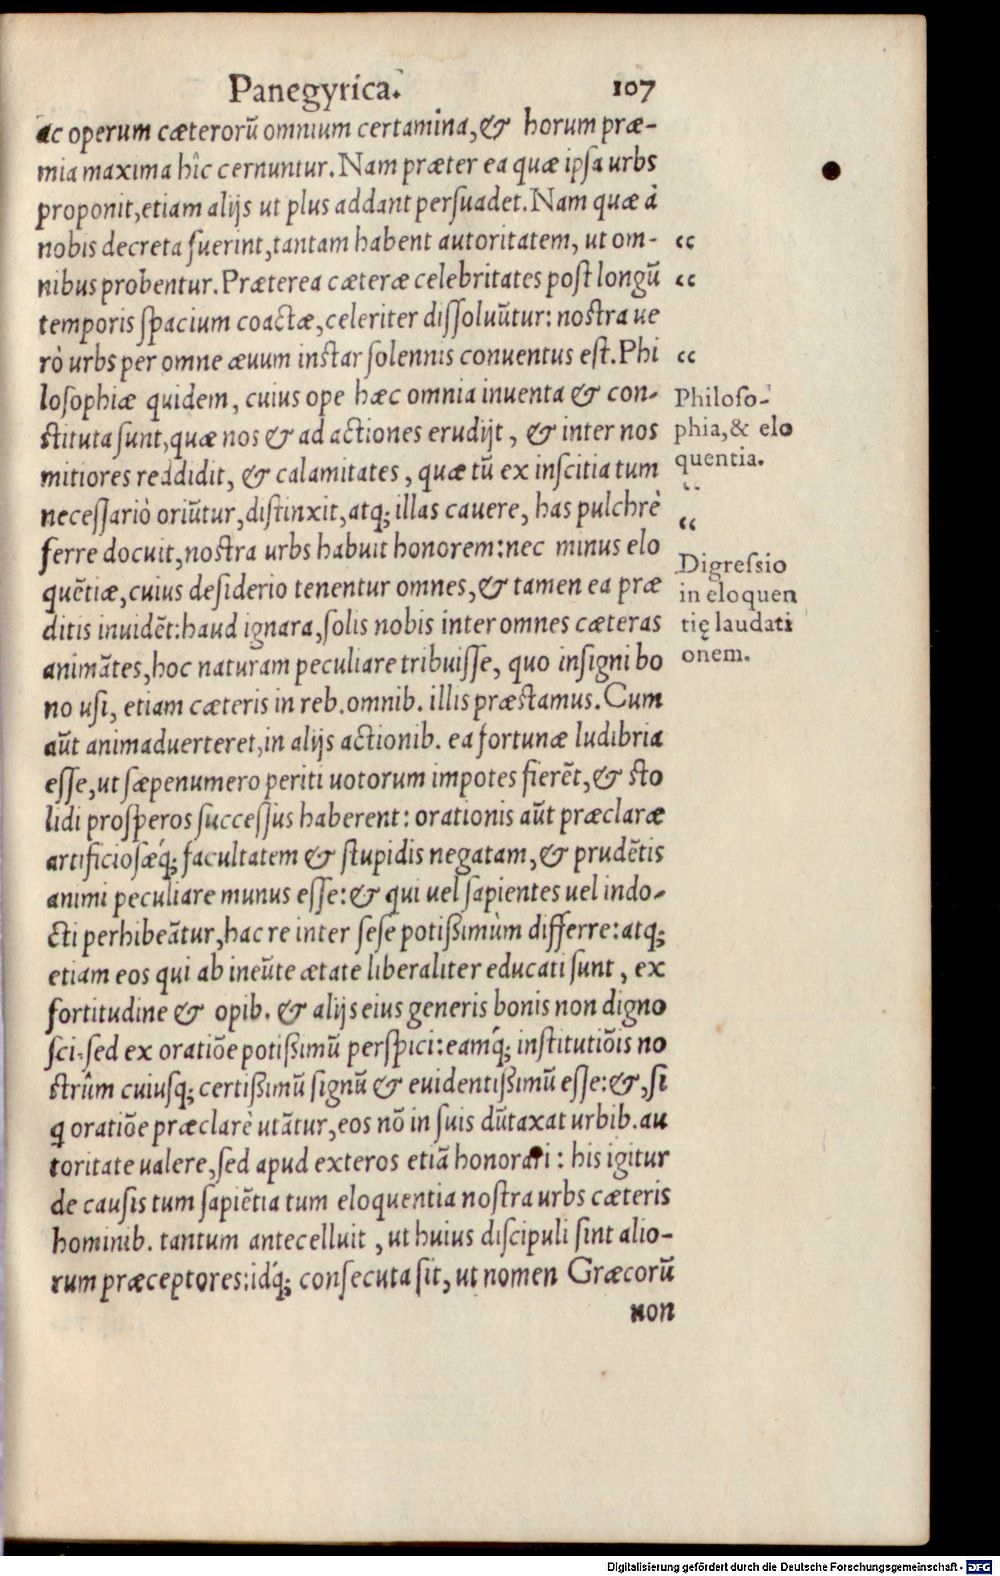 Panegyrica. 107
ac operum cæterorũ omnium certamina, & horum præ-
mia maxima hîc cernuntur. Nam præter ea quæ ipſa urbs
proponit, etiam alijs ut plus addant perſuadet. Nam quæ à
nobis decreta fuerint, tantam habent autoritatem, ut om-
nibus probentur. Præterea cæteræ celebritates poſt longũ
temporis ſpacium coactæ, celeriter diſſoluũtur: noſtra ue
rò urbs per omne æuum inſtar ſolennis conuentus eſt. Phi
loſophiæ quidem, cuius ope hæc omnia inuenta & con-
ſtituta ſunt, quæ nos & ad actiones erudijt, & inter nos
mitiores reddidit, & calamitates, quæ tũ ex inſcitia tum
neceſſariò oriũtur, diſtinxit, atq; illas cauere, has pulchrè
ferre docuit, noſtra urbs habuit honorem: nec minus elo
quẽtiæ, cuius deſiderio tenentur omnes, & tamen ea præ
ditis inuidẽt: haud ignara, ſolis nobis inter omnes cæteras
animãtes, hoc naturam peculiare tribuiſſe, quo inſigni bo
no uſi, etiam cæteris in reb. omnib. illis præſtamus. Cum
aũt animaduerteret, in alijs actionib. ea fortunæ ludibria
eſſe, ut ſæpenumero periti uotorum impotes fierẽt, & ſto
lidi proſperos ſucceſſus haberent: orationis aũt præclaræ
artificioſæq́; facultatem & ſtupidis negatam, & prudẽtis
animi peculiare munus eſſe: & qui uel ſapientes uel indo-
cti perhibeãtur, hac re inter ſeſe potißimùm differre: atq;
etiam eos qui ab ineũte ætate liberaliter educati ſunt, ex
fortitudine & opib. & alijs eius generis bonis non digno
ſci, ſed ex oratiõe potißimũ perſpici: eamq́; inſtitutiõis no
ſtrûm cuiuſq; certißimũ ſignũ & euidentißimũ eſſe: &, ſi
q oratiõe præclarè utãtur, eos nõ in ſuis dũtaxat urbib. au
toritate ualere, ſed apud exteros etiã honorari: his igitur
de cauſis tum ſapiẽtia tum eloquentia noſtra urbs cæteris
hominib. tantum antecelluit, ut huius diſcipuli ſint alio-
rum præceptores: idq́; conſecuta ſit, ut nomen Græcorũ
non
“
“
“
Philoſo-
phia, & elo
quentia.
“
“
Digreſsio
in eloquen
tię laudati
onem.
Digitalisierung gefördert durch die Deutsche Forschungsgemeinschaft - DFG